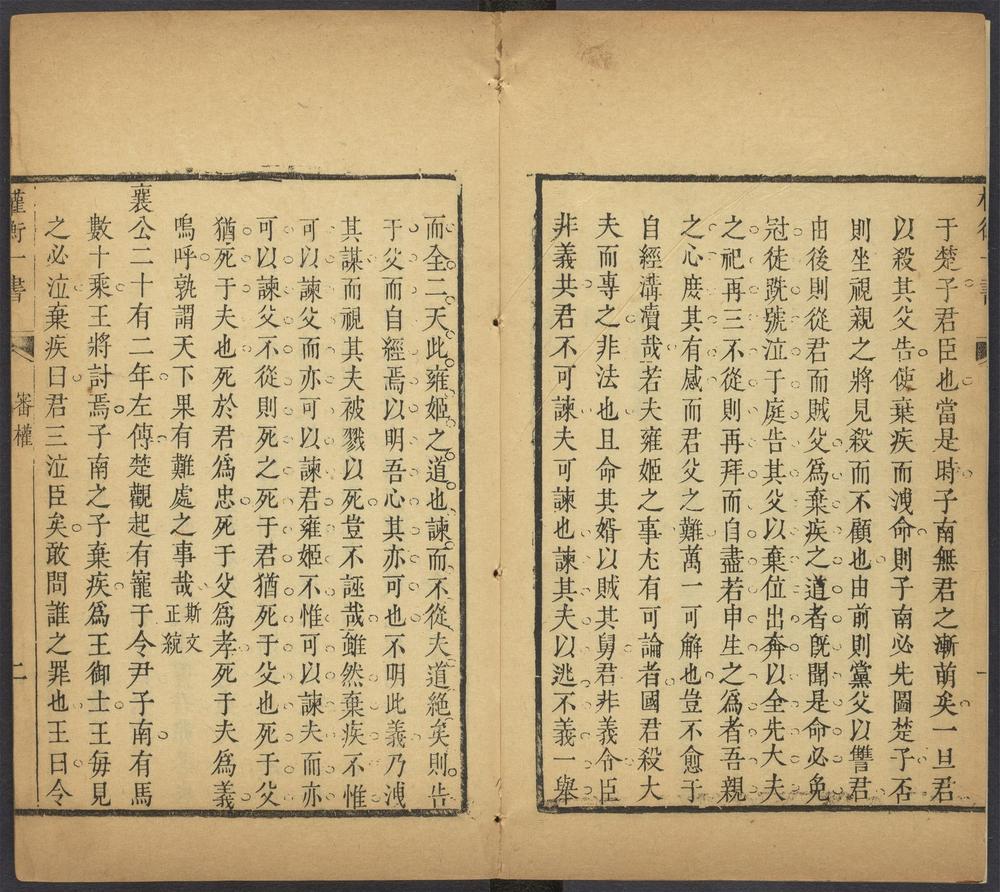 于楚子君臣也當是時子南無君之漸萌矣一旦君
以殺其父告使棄疾而洩命則子南必先圖楚子否
則坐視親之將見殺而不顧也由前則黨父以讐君
由後則從君而賊父爲棄疾之道者旣聞是命必免
冠徒跣號泣于庭告其父以棄位出奔以全先大夫
之祀再三不從則再拜而自盡若申生之爲者吾親
之心庶其有感而君父之難萬一可解也豈不愈于
自經溝瀆哉若夫雍姬之事尤有可論者國君殺大
夫而專之非法也且命其婿以賊其舅君非義令臣
非義共君不可諫夫可諫也諫其夫以逃不義一舉
而全二天此雍姬之道也諫而不從夫道絶矣則告
于父而自經焉以明吾心其亦可也不明此義乃洩
其謀而視其夫被戮以死豈不誣哉雖然棄疾不惟
可以諫父而亦可以諫君雍姬不惟可以諫夫而亦
可以諫父不從則死之死于君猶死于父也死于父
猶死于夫也死於君爲忠死于父爲孝死于夫爲義
嗚呼孰謂天下果有難處之事哉 斯文
正統
襄公二十有二年左傳楚觀起有寵于令尹子南有馬
數十乘王將討焉子南之子棄疾爲王御士王每見
之必泣棄疾曰君三泣臣矣敢問誰之罪也王曰令
權衡一書
審權
二